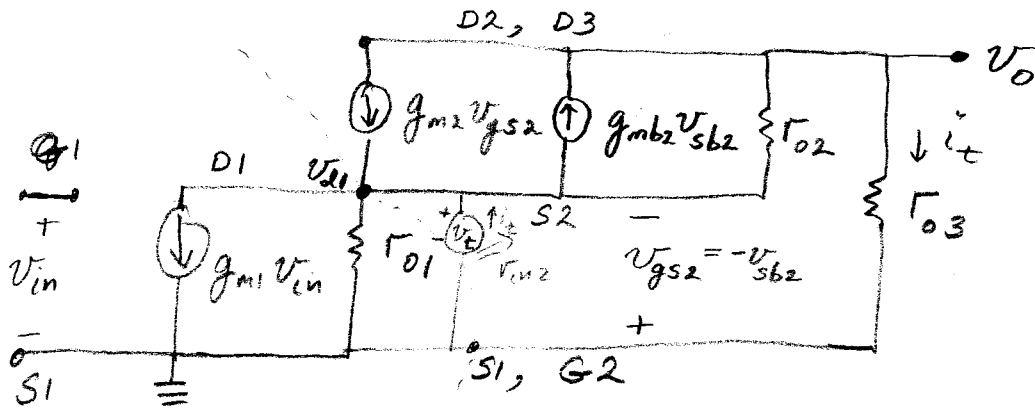 D2, D3
v_o
g_m2 v_gs2
g_mb2 v_sb2
r_o2
i_t
G1
D1
v_d1
+
v_in
−
g_m1 v_in
r_o1
+
−
v_t
i_t
r_in2
S2
−
v_gs2 = -v_sb2
+
r_o3
S1
S1, G2